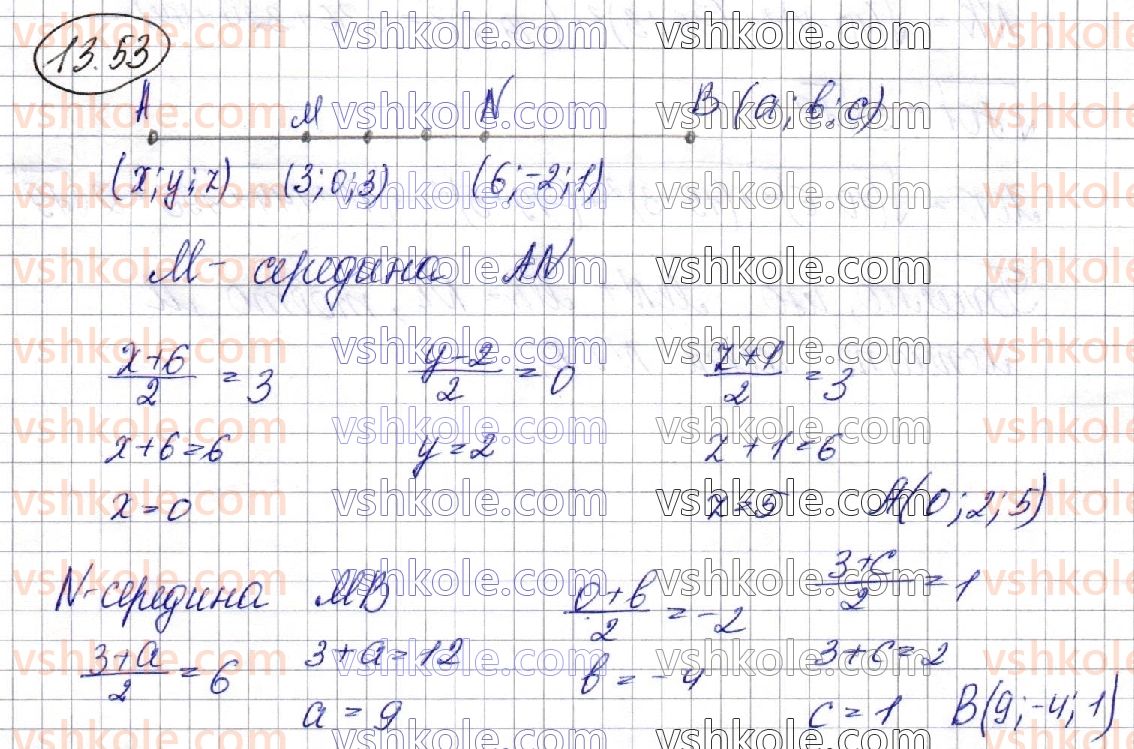 13.53
A M N B (a; в; c)
(x; y; z) (3; 0; 3) (6; -2; 1)
M - середина AN
(x+6)/2 = 3 (y-2)/2 = 0 (z+1)/2 = 3
x+6=6 y=2 z+1=6
x=0 z=5 A(0; 2; 5)
N-середина MB (0+в)/2 = -2 (3+c)/2 = 1
(3+a)/2 = 6 3+a=12 в = -4 3+c=2
a = 9 c=1 B(9; -4; 1)
vshkole.com